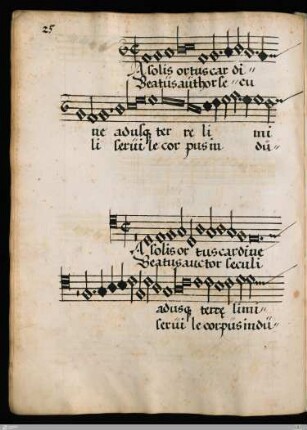 25
A solis ortus car di
Beatus author se cu
ne adusq ter re li mi
li serui le cor pus in du
A solis or tus cardine
Beatus auctor seculi
adusq terrę limi
serui le corpus indu